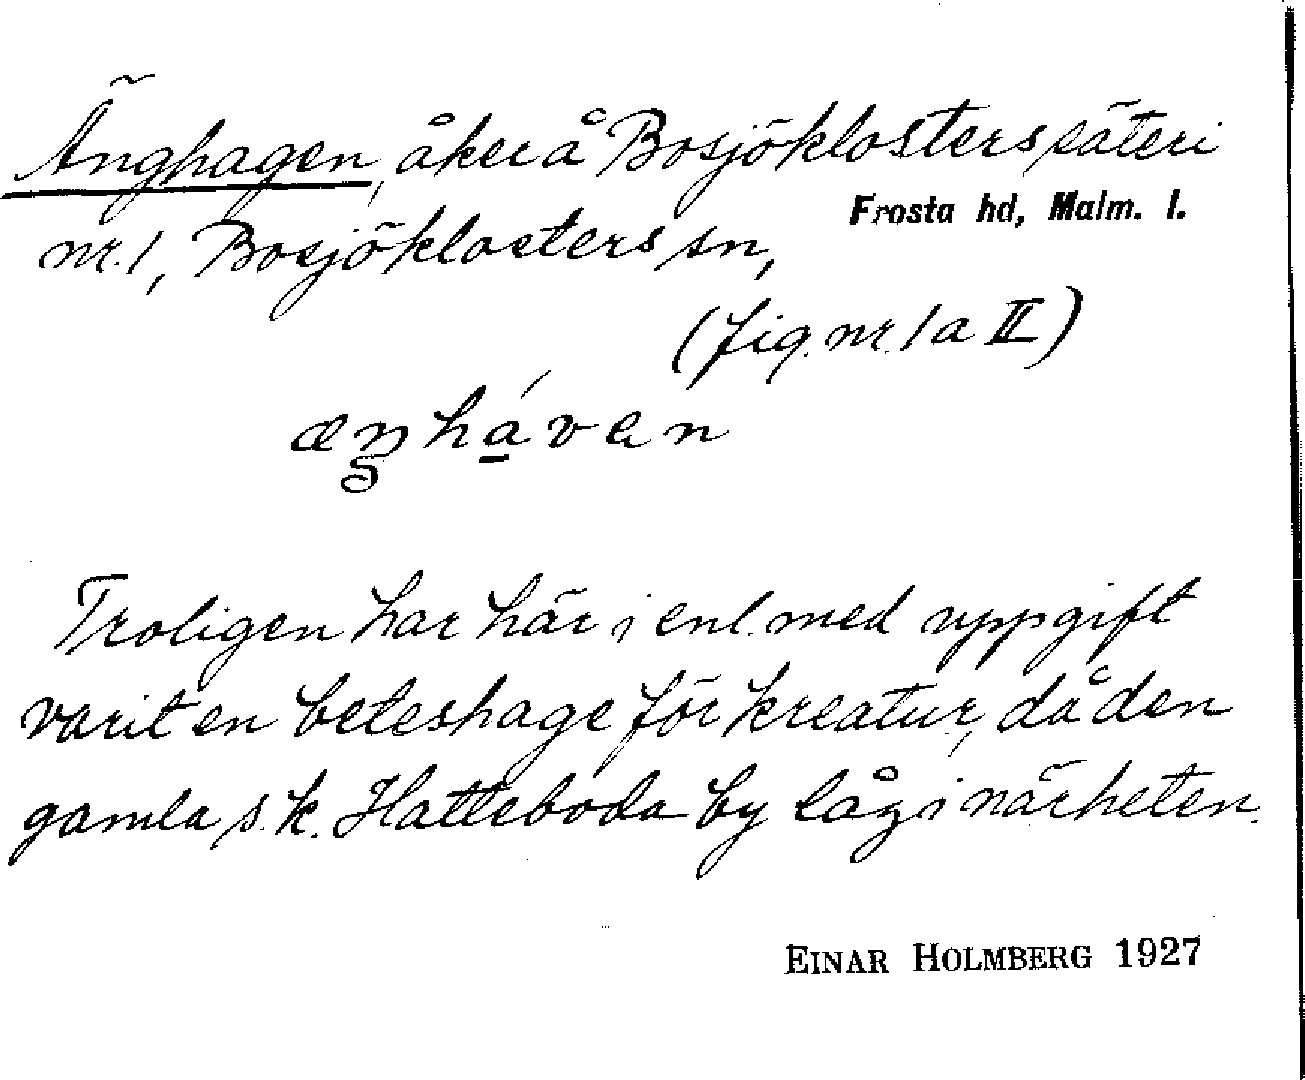 Änghagen, åker å Bosjöklosters säteri
Frosta hd, Malm. l.
nr. 1, Bosjöklosters sn,
(fig. nr. 1a II)
Troligen har här i enl. med uppgift
varit en beteshage för kreatur, då den
gamla s.k. Hatteboda by låg i närheten.
EINAR HOLMBERG 1927